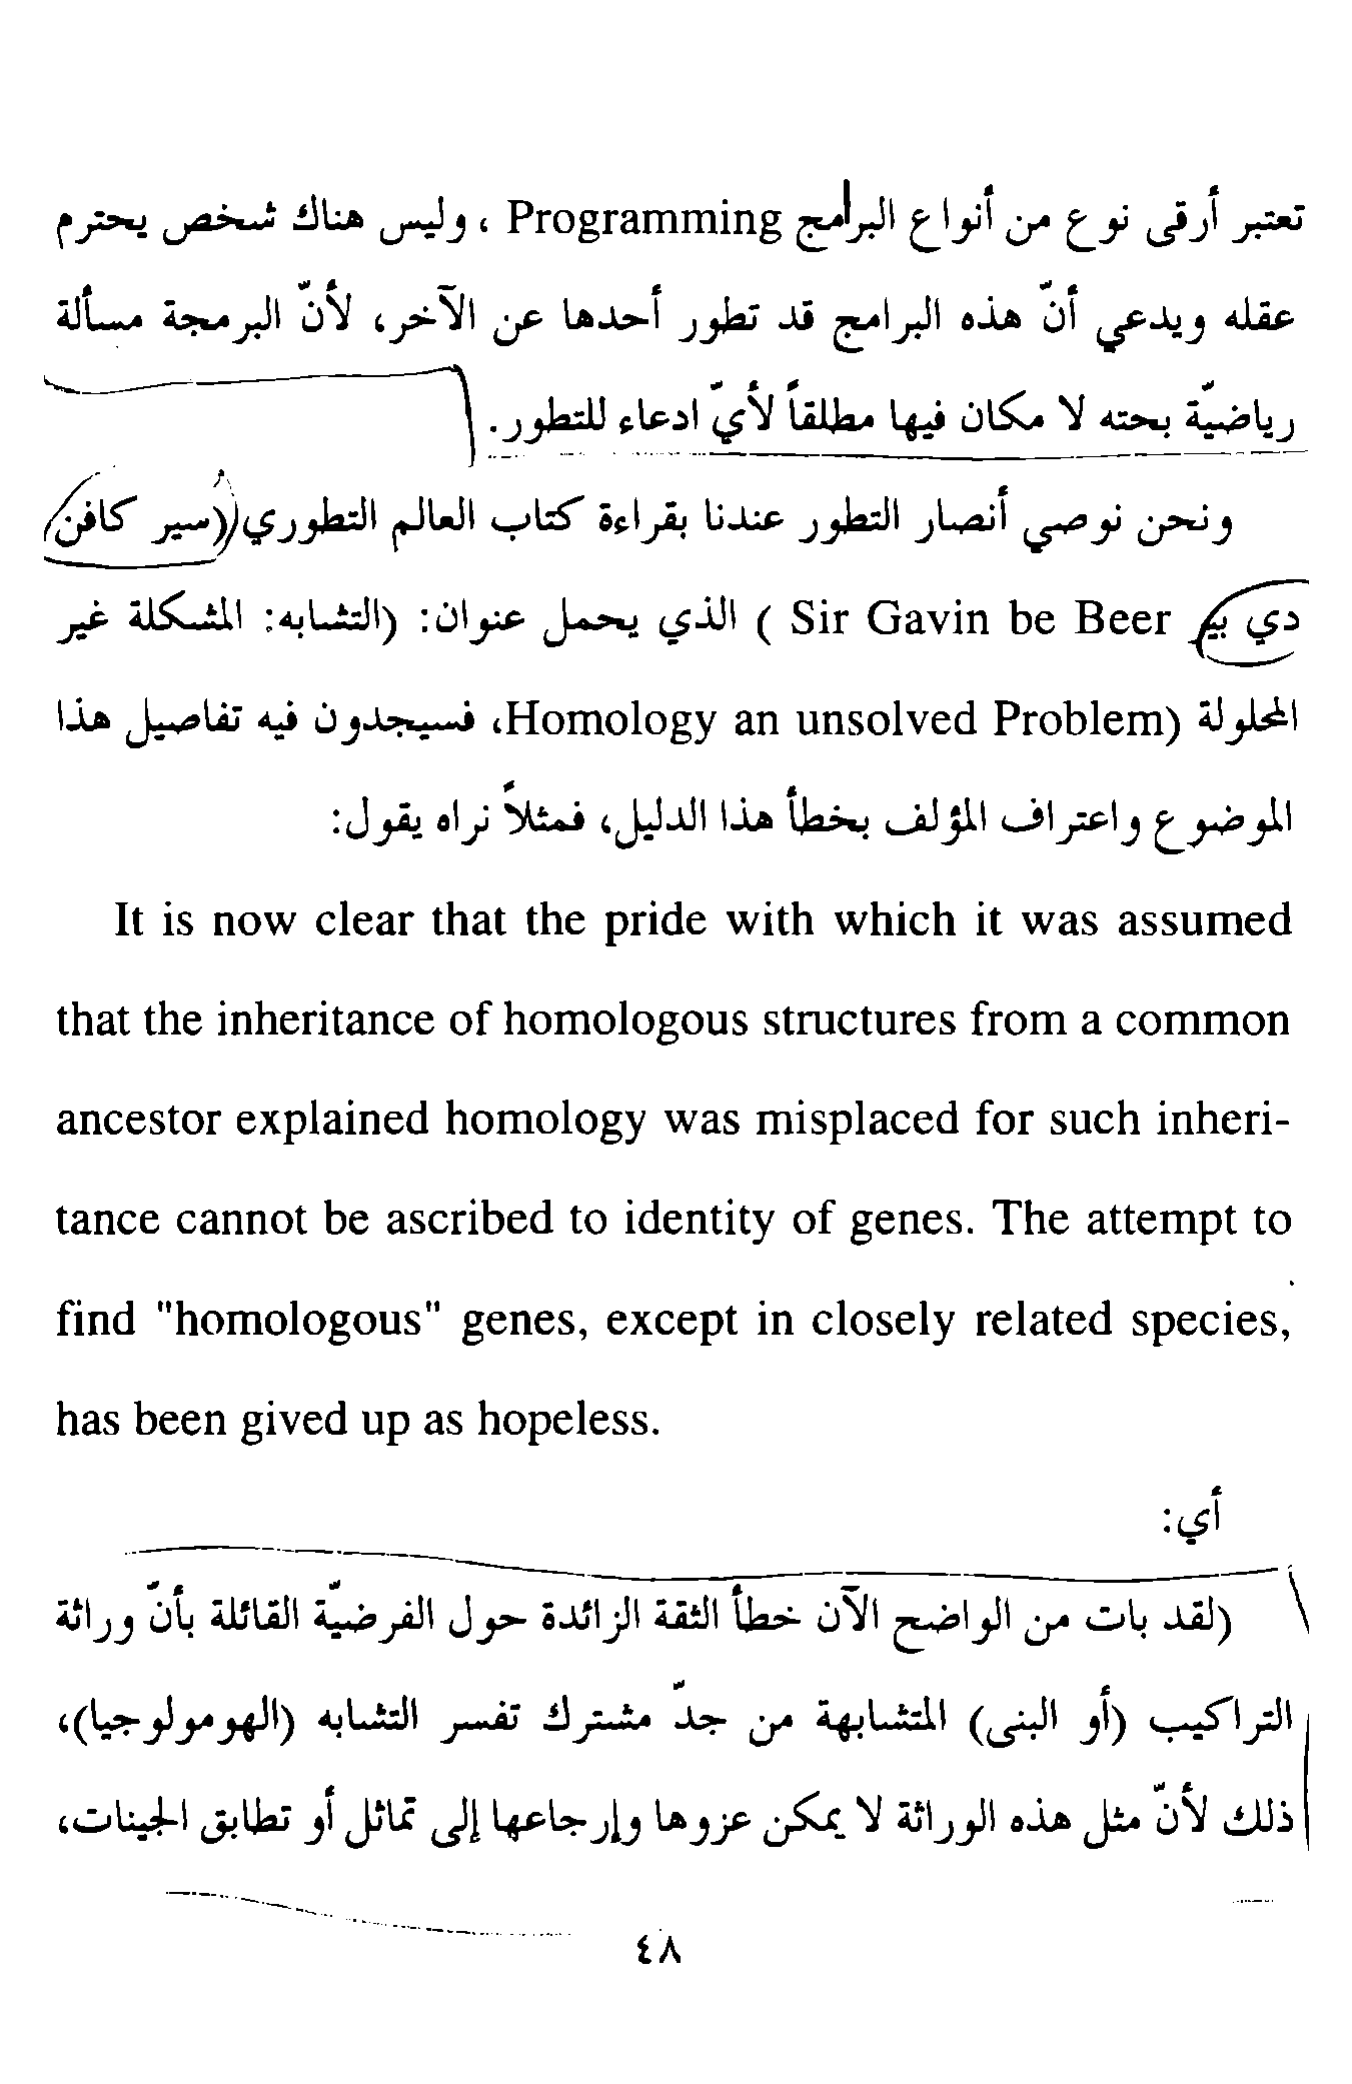 تعتبر أرقى نوع من أنواع البرامج Programming ، وليس هناك شخص يحترم
عقله ويدعي أنّ هذه البرامج قد تطور أحدها عن الآخر، لأنّ البرمجة مسألة
رياضيّة بحته لا مكان فيها مطلقاً لأيّ ادعاء للتطور.
ونحن نوصي أنصار التطور عندنا بقراءة كتاب العالم التطوري ((سير كافن
دي بير Sir Gavin be Beer ) الذي يحمل عنوان: (التشابه: المشكلة غير
المحلولة (Homology an unsolved Problem، فسيجدون فيه تفاصيل هذا
الموضوع واعتراف المؤلف بخطأ هذا الدليل، فمثلاً نراه يقول:
It is now clear that the pride with which it was assumed
that the inheritance of homologous structures from a common
ancestor explained homology was misplaced for such inheri-
tance cannot be ascribed to identity of genes. The attempt to
find "homologous" genes, except in closely related species,
has been gived up as hopeless.
أي:
(لقد بات من الواضح الآن خطأ الثقة الزائدة حول الفرضيّة القائلة بأنّ وراثة
التراكيب (أو البنى) المتشابهة من جدّ مشترك تفسر التشابه (الهومولوجيا)،
ذلك لأنّ مثل هذه الوراثة لا يمكن عزوها وإرجاعها إلى تماثل أو تطابق الجينات،
٤٨